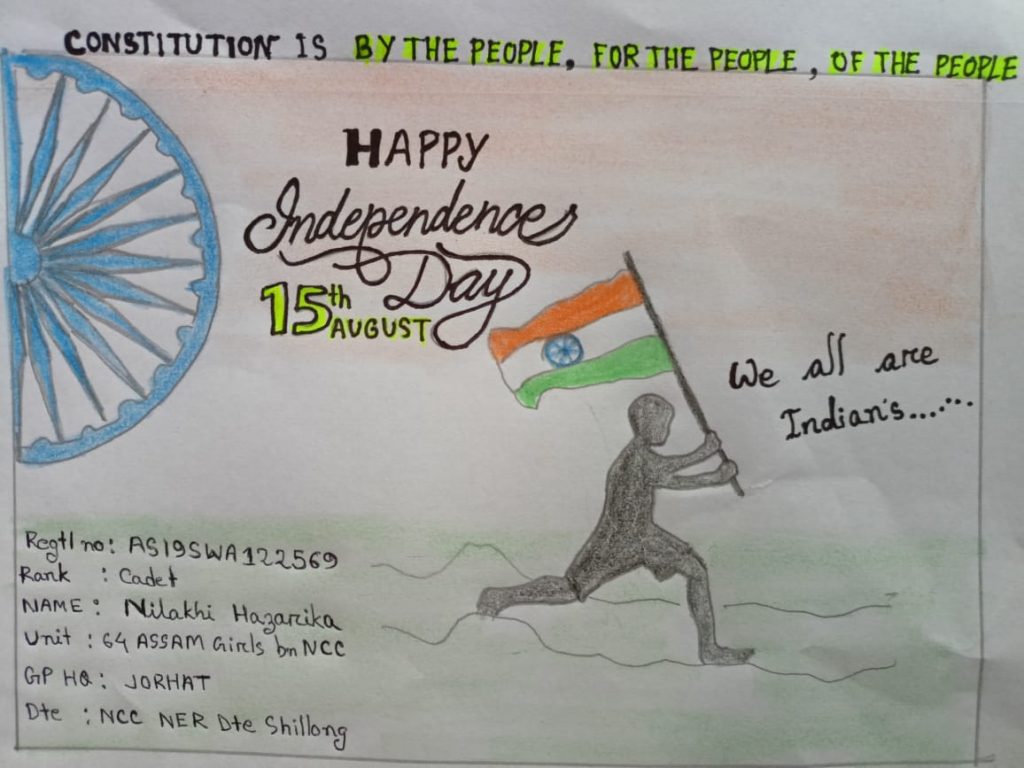 CONSTITUTION IS BY THE PEOPLE, FOR THE PEOPLE, OF THE PEOPLE
HAPPY
Independence
Day
15th AUGUST
We all are
Indian's.......
Regtl no: AS19SWA122569
Rank : Cadet
NAME : Nilakhi Hazarika
Unit : 64 ASSAM Girls bn NCC
GP HQ: JORHAT
Dte : NCC NER Dte Shillong